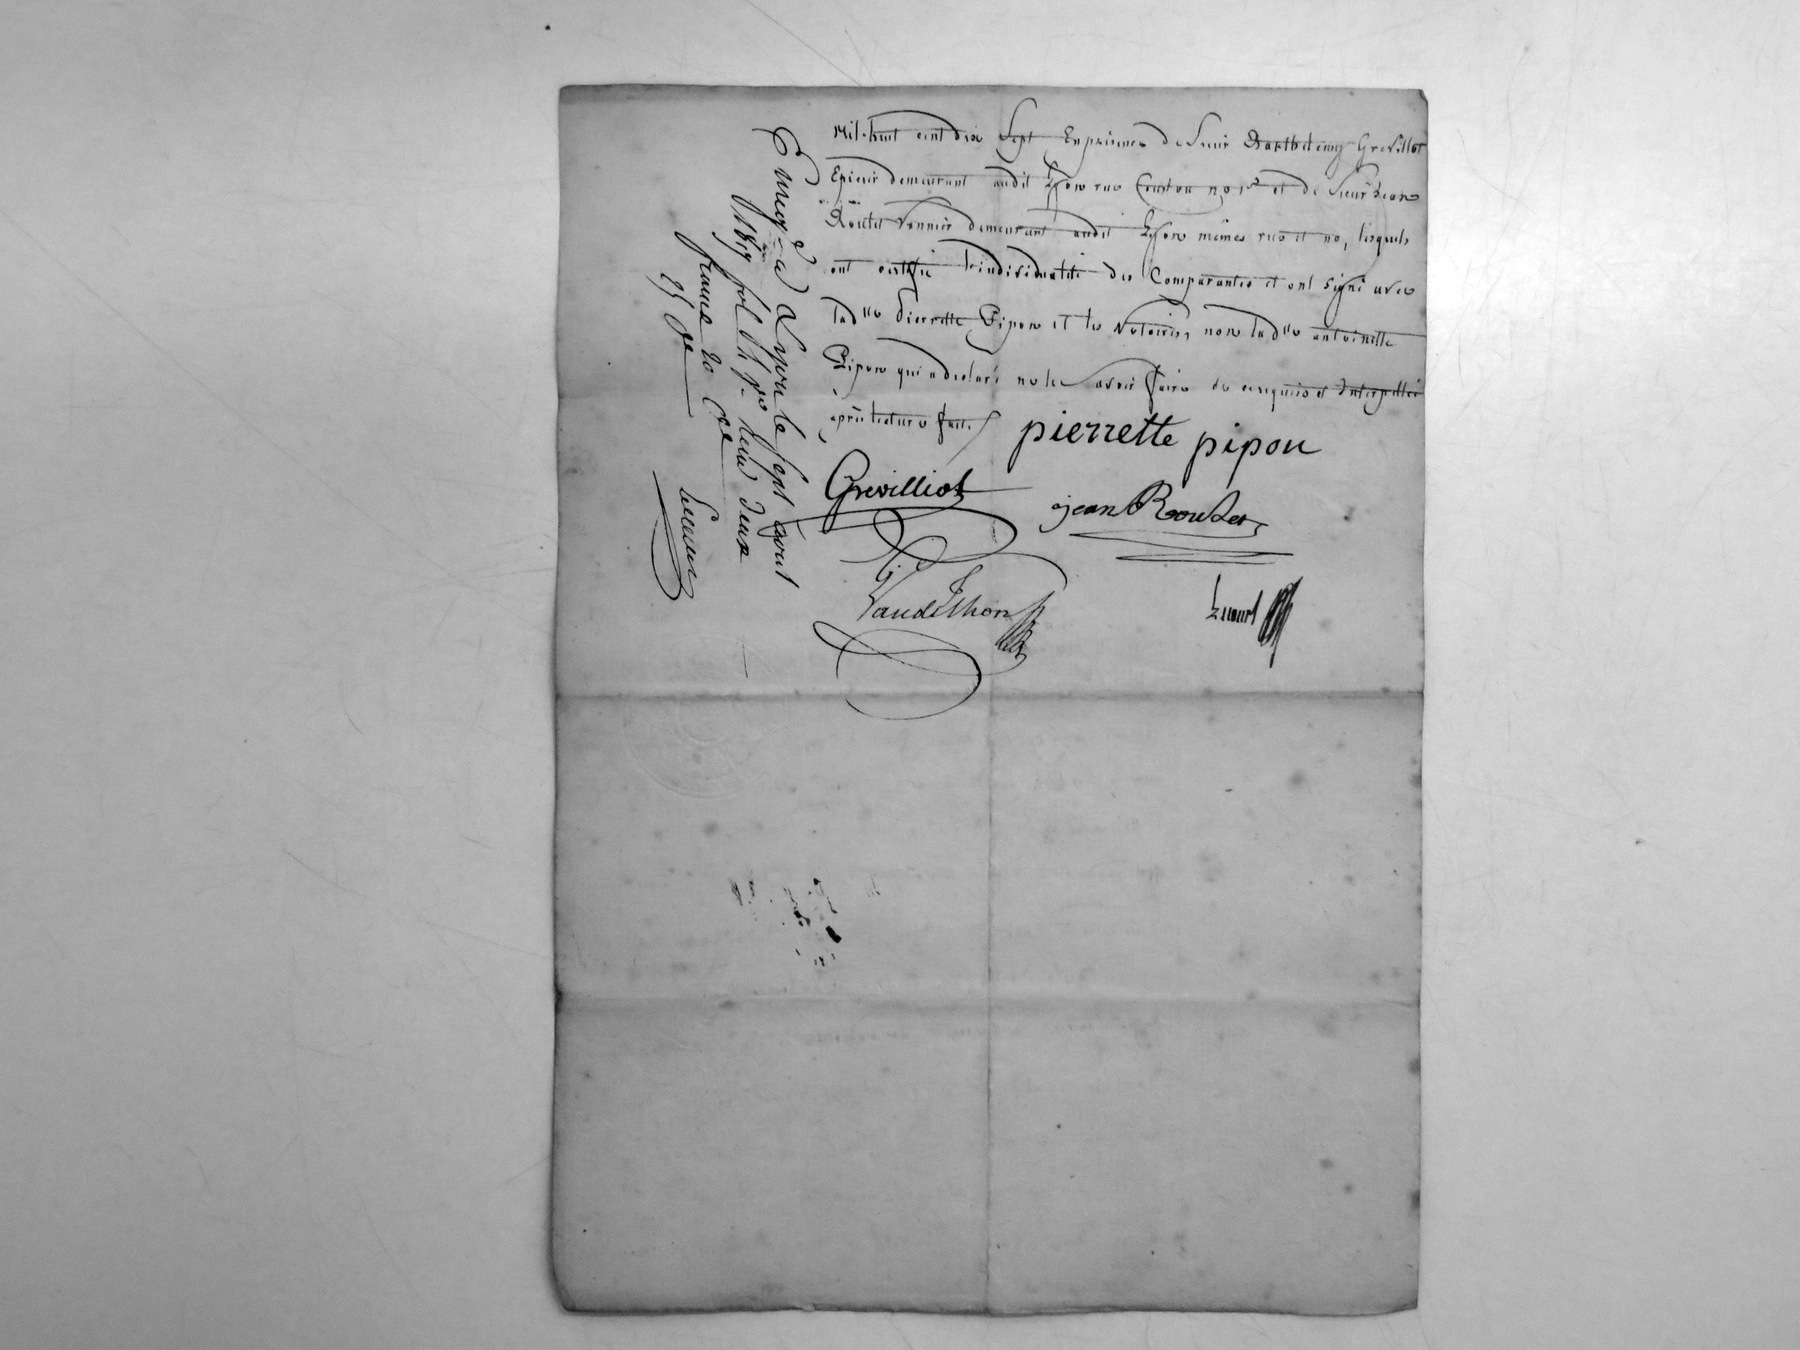 Mil huit cent dix Sept En présence de Sieur Barthelemy Grevillot
Epicier demeurant audit Lyon rue Couston no 12 et de Sieur Jean
Roulet Vannier demeurant audit Lyon mêmes rue et no, lesquels
ont certifié l'individualité des Comparantes et ont signé avec
lad lle pierrette Pipon et les Notaires, non lad lle antoinette
Pipon qui a déclaré ne le savoir faire de ce enquise et Interpellée
après lecture faite
pierrette pipon
Grevilliot
jean Roulet
Lecourt
Enreg.é à Lyon le Sept avril
1817 fol. Reçu deux
francs 20 Cme